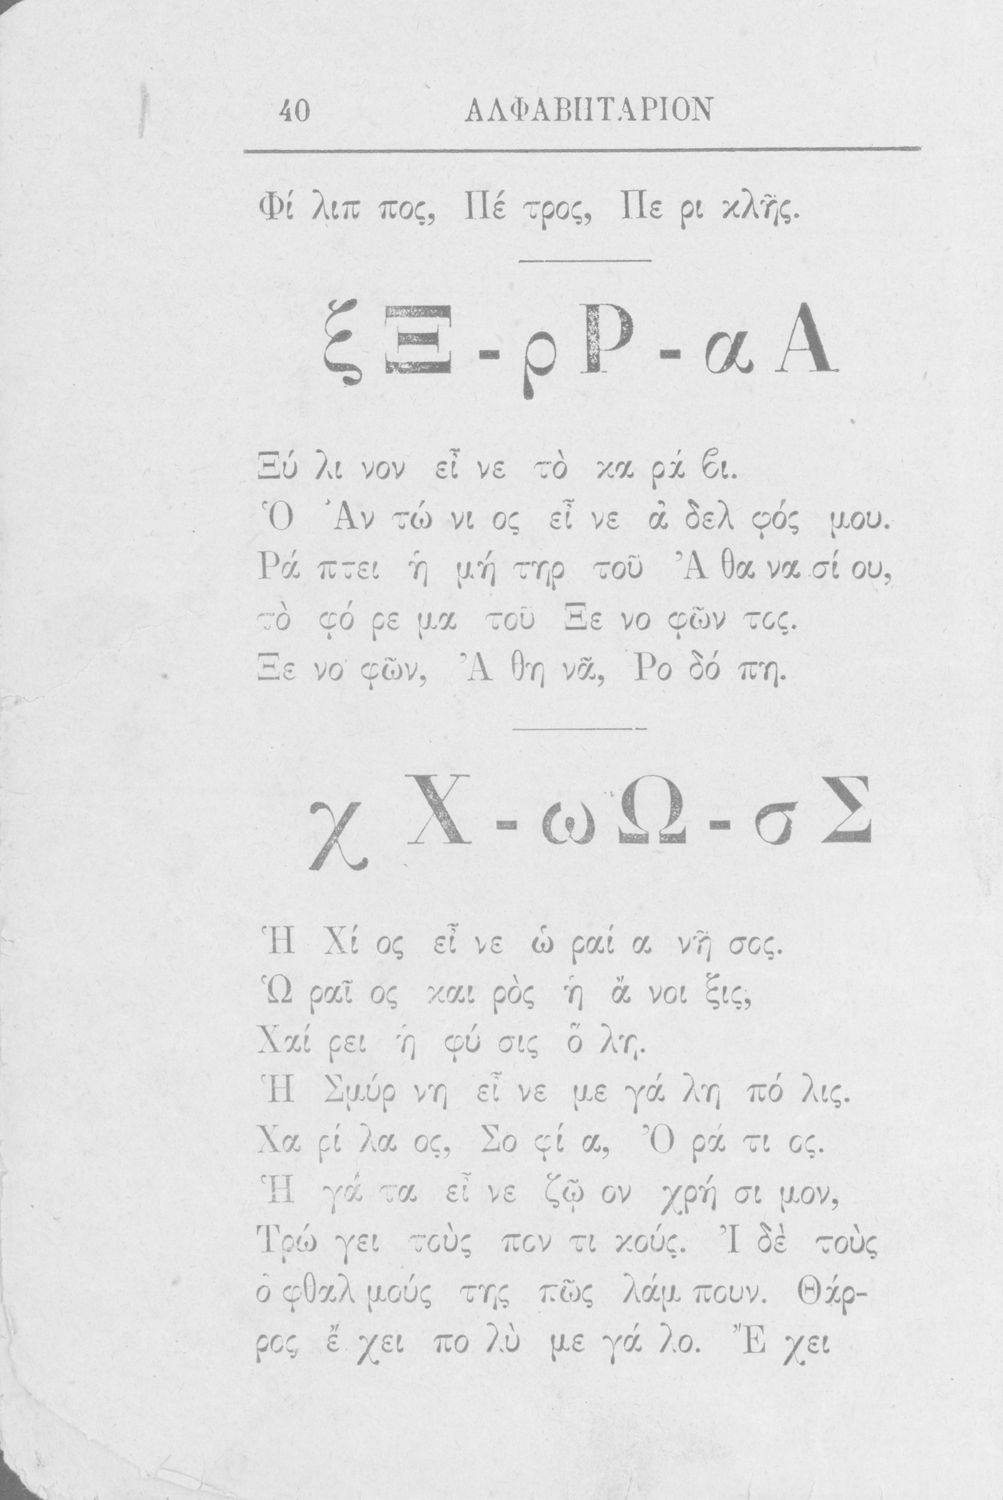 40 ΑΛΦΑΒΗΤΑΡΙΟΝ
Φί λιπ πος, Πέ τρος, Πε ρι κλῆς.
ξ Ξ - ρ Ρ - α Α
Ξύ λι νον εἶ νε τὸ κα ρά ϐι.
Ὁ Ἀν τώ νι ος εἶ νε ἀ δελ φός μου.
Ρά πτει ἡ μή τηρ τοῦ Ἀ θα να σί ου,
τὸ φό ρε μα τοῦ Ξε νο φῶν τος.
Ξε νο φῶν, Ἀ θη νᾶ, Ῥο δό πη.
χ Χ - ω Ω - σ Σ
Ἡ Χί ος εἶ νε ὡ ραί α νῆ σος.
Ὡ ραῖ ος και ρὸς ἡ ἄ νοι ξις,
Χαί ρει ἡ φύ σις ὅ λη.
Ἡ Σμύρ νη εἶ νε με γά λη πό λις.
Χα ρί λα ος, Σο φί α, Ὀ ρά τι ος.
Ἡ γά τα εἶ νε ζῷ ον χρή σι μον,
Τρώ γει τοὺς πον τι κούς. Ἰ δὲ τοὺς
ὀ φθαλ μούς της πῶς λάμ πουν. Θάρ-
ρος ἔ χει πο λὺ με γά λο. Ἔ χει